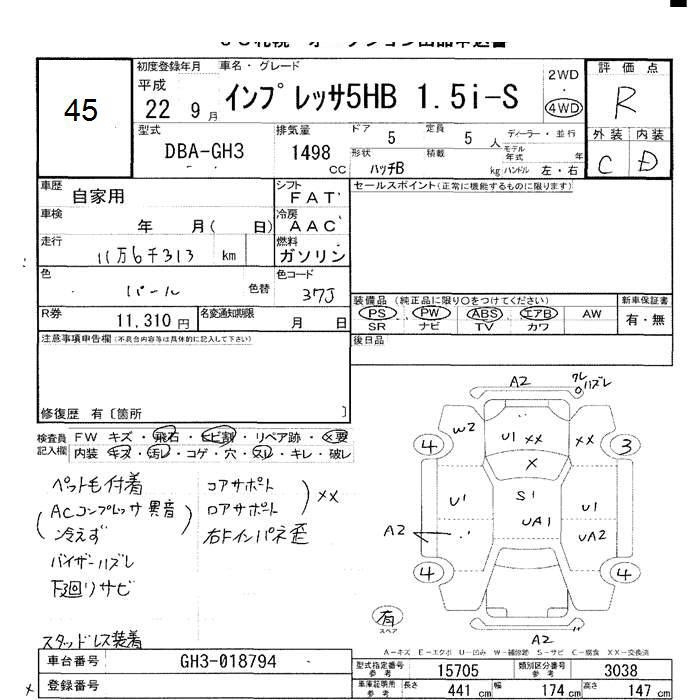 45
初度登録年月 車名・グレード
平成 22 9月 インプレッサ5HB 1.5i-S
2WD
4WD
評価点
R
外装 内装
C D
型式 排気量 ドア 定員 ディーラー・並行
DBA-GH3 1498 CC 5 5人 モデル年式 年
形状 積載
ハッチB kg ハンドル 左・右
車歴 自家用 シフト FAT
車検 年 月( 日) 冷房 AAC
走行 11万6千313 km 燃料 ガソリン
色 パール 色替 色コード 37J
R券 11,310円 名変通知期限 月 日
セールスポイント(正常に機能するものに限ります)
装備品(純正品に限り○をつけてください) 新車保証書
PS PW ABS エアB AW 有・無
SR ナビ TV カワ
後日品
注意事項申告欄(不具合内容等は具体的に記入して下さい)
修復歴 有〔箇所 〕
検査員記入欄 FW キズ・飛石・ヒビ割・リペア跡・×要
内装・キズ・汚レ・コゲ・穴・スレ・キレ・破レ
ペット毛付着
(ACコンプレッサ異音
冷えず)
バイザーハズレ
下廻リサビ
スタッドレス装着
コアサポート
ロアサポート
右Fインパネ歪
××
A2 クレ ハズレ
W2 U1 ×× ××
4 3
×
U1 S1 U1
A2 UA1 UA2
4 4
有
スペア
A2
A-キズ E-エクボ U-凹み W-補修跡 S-サビ C-腐食 XX-交換済
車台番号 GH3-018794
登録番号
型式指定番号参考 15705 類別区分番号参考 3038
車庫証明用参考 長さ 441cm 幅 174cm 高さ 147cm